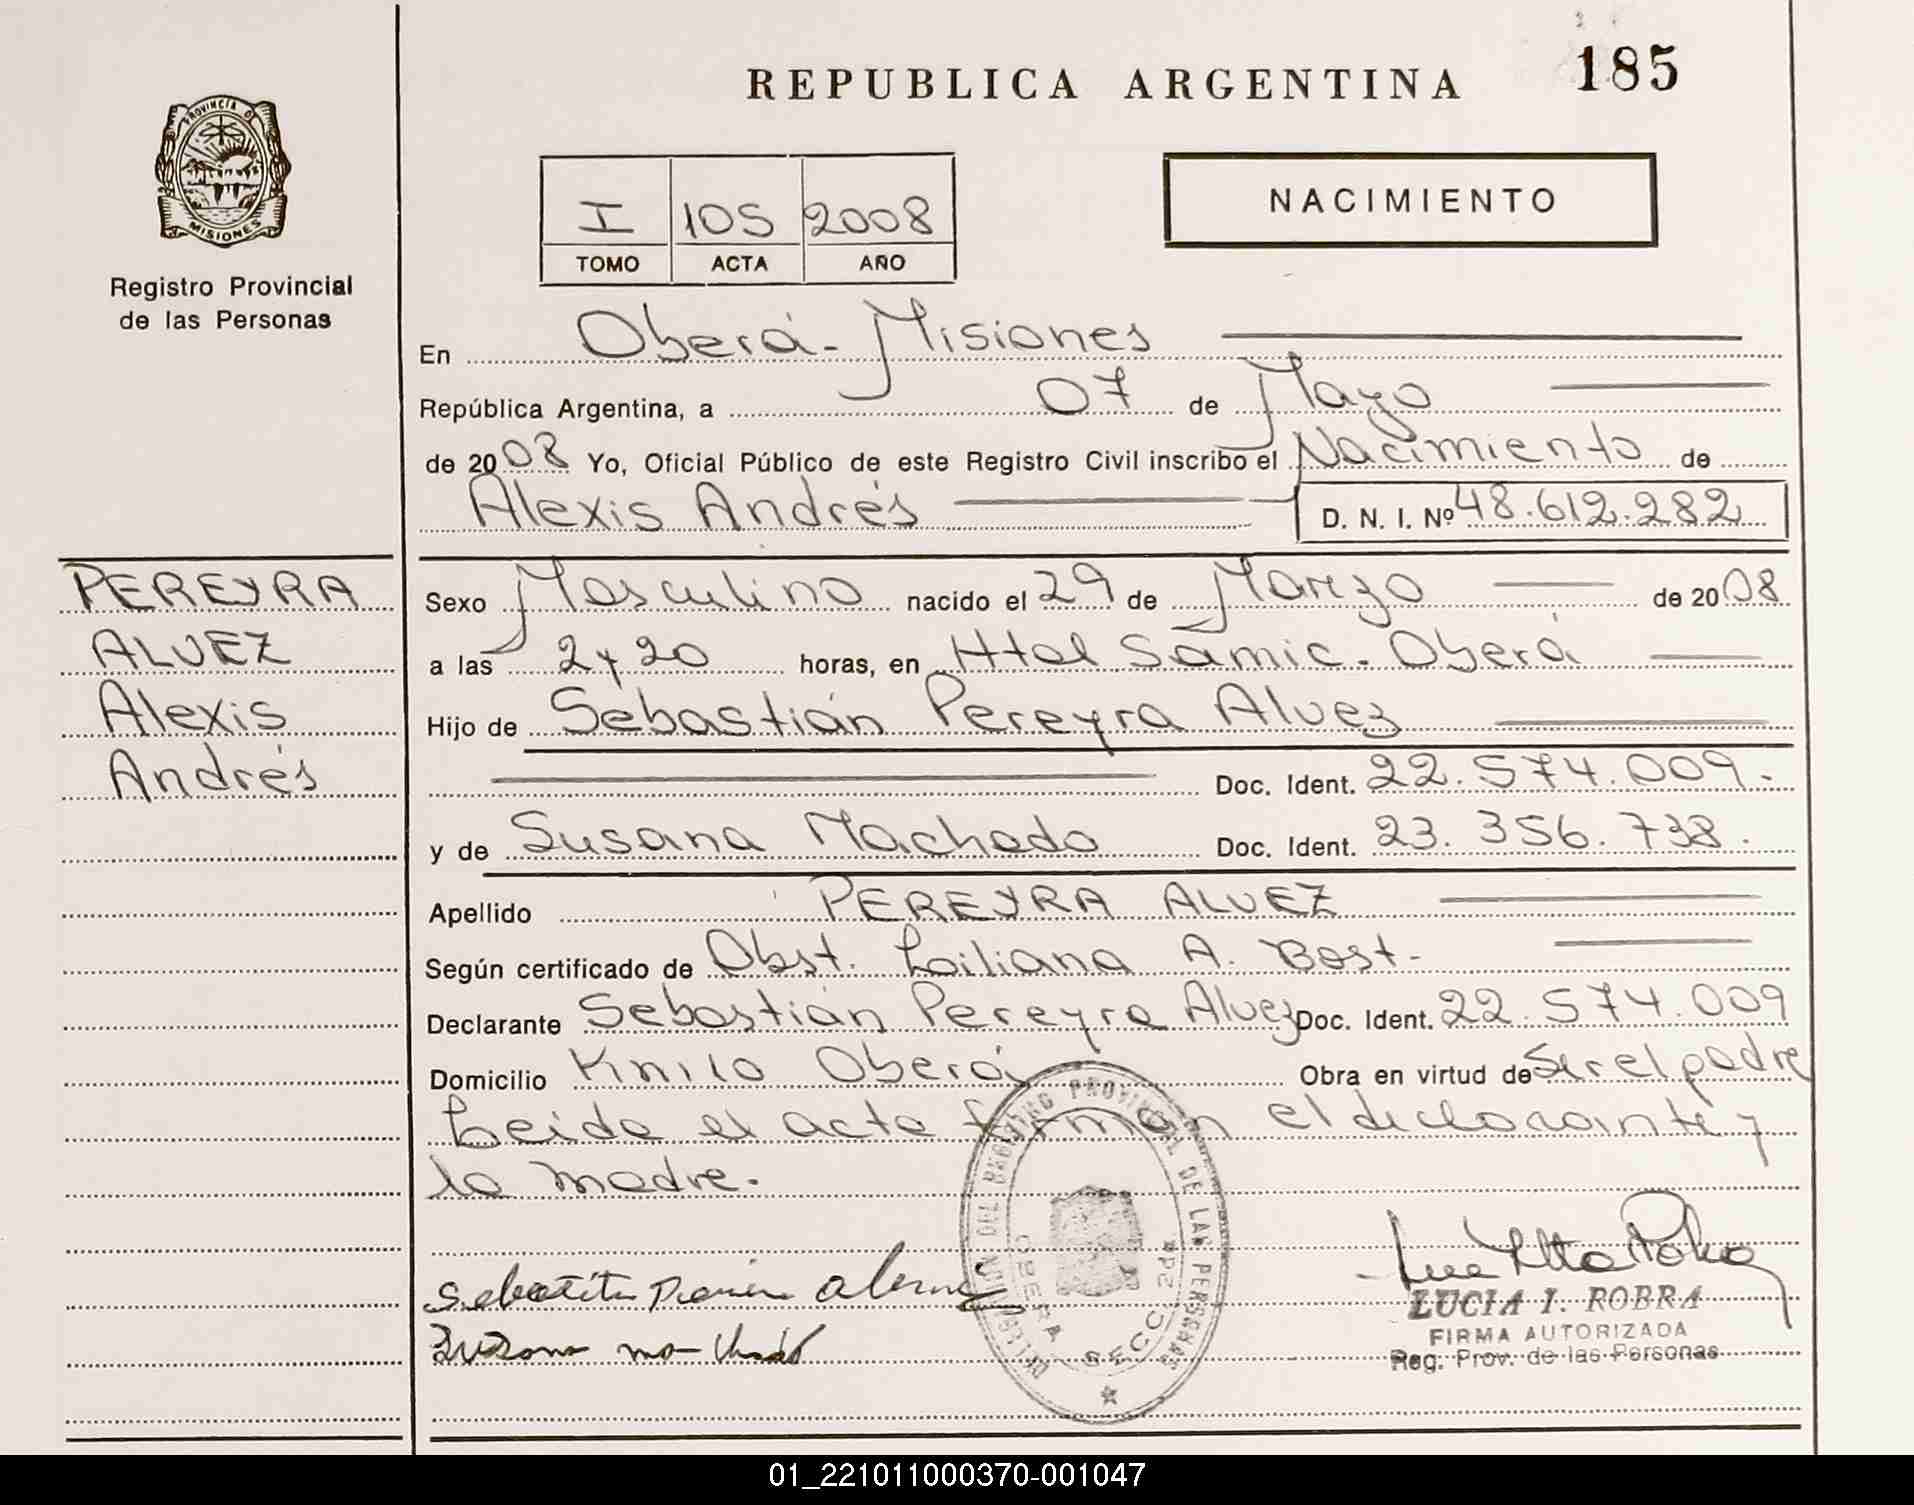 REPUBLICA ARGENTINA
185
PROVINCIA D
MISIONES
Registro Provincial
de las Personas
I 105 2008
TOMO ACTA AÑO
NACIMIENTO
En Oberá - Misiones
República Argentina, a 07 de Mayo
de 2008 Yo, Oficial Público de este Registro Civil inscribo el Nacimiento de
Alexis Andrés D. N. I. Nº 48.612.282
PEREYRA
ALVEZ
Alexis
Andrés
Sexo Masculino nacido el 29 de Marzo de 2008
a las 2 y 20 horas, en Htal Samic. Oberá
Hijo de Sebastián Pereyra Alvez
Doc. Ident. 22.574.009.
y de Susana Machado Doc. Ident. 23.356.738.
Apellido PEREYRA ALVEZ
Según certificado de Obst. Liliana A. Bost.
Declarante Sebastián Pereyra Alvez Doc. Ident. 22.574.009
Domicilio Km 10 Oberá Obra en virtud de Ser el padre
Leida el acta firman el declarante y
la madre.
DEL REGISTRO PROVINCIAL DE LAS PERSONAS
OBERA SECC 2da
LUCIA I. ROBRA
FIRMA AUTORIZADA
Reg. Prov. de las Personas
01_221011000370-001047